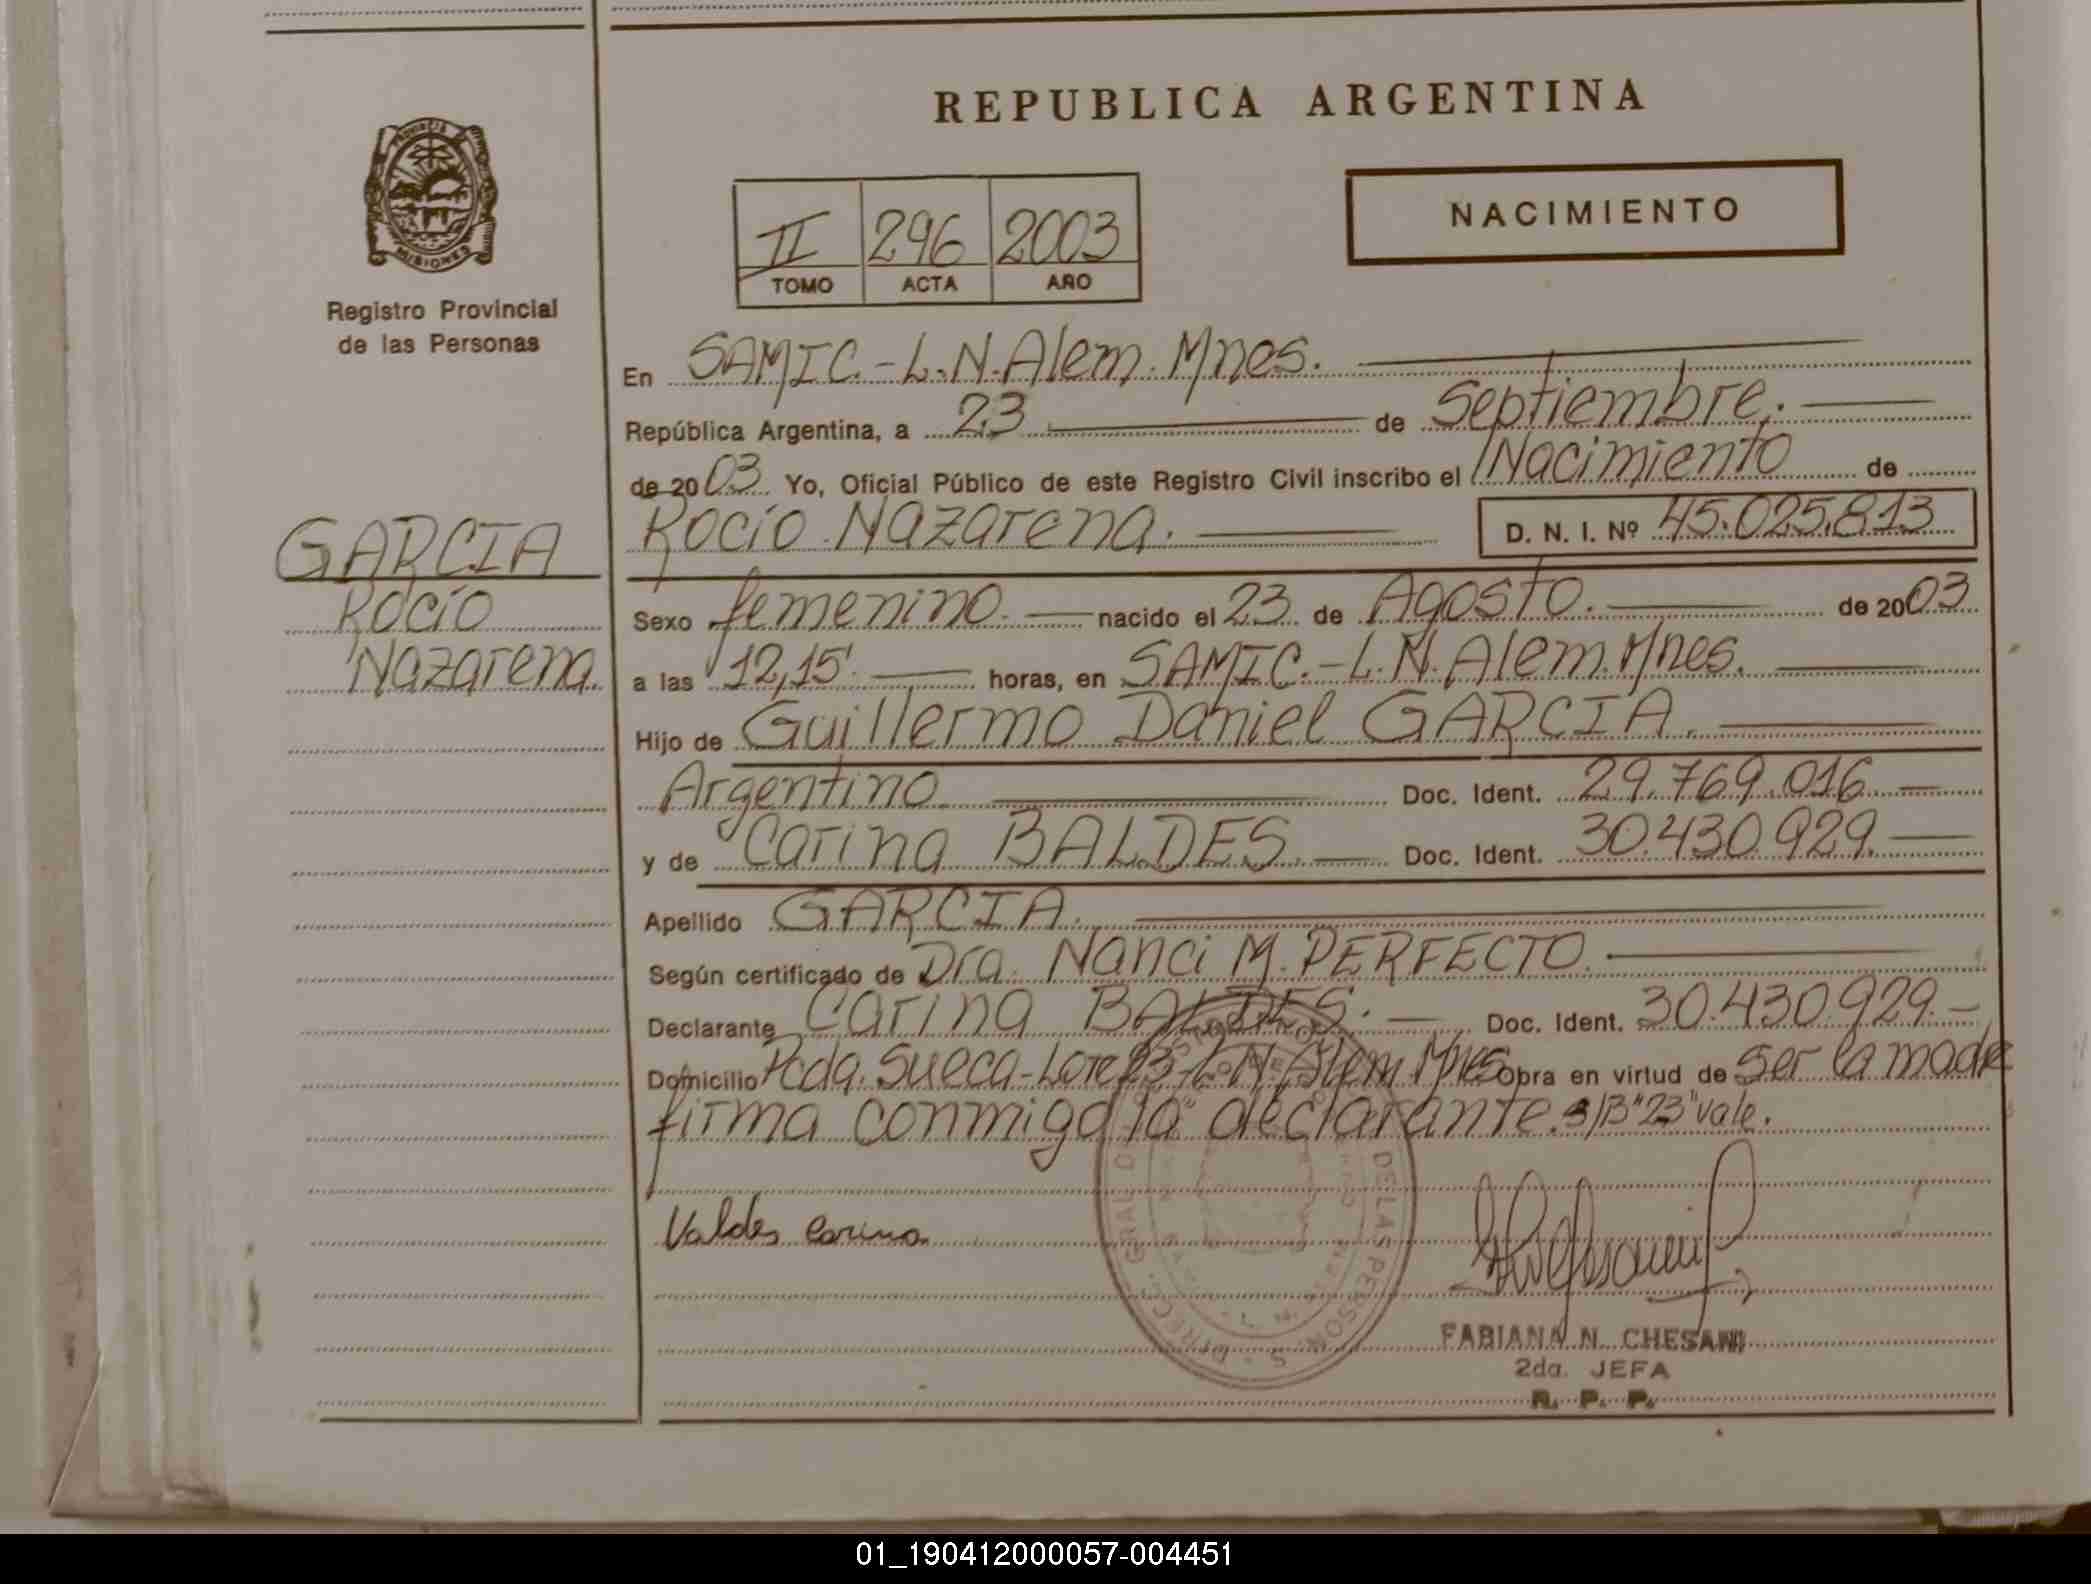 REPUBLICA ARGENTINA
PROVINCIA
MISIONES
Registro Provincial
de las Personas
II 296 2003
TOMO ACTA AÑO
NACIMIENTO
En SAMIC.-L.N.Alem.Mnes.
República Argentina, a 23 de Septiembre.
de 2003 Yo, Oficial Público de este Registro Civil inscribo el Nacimiento de
Rocío Nazarena. D. N. I. Nº 45.025.813
GARCIA
Rocío
Nazarena.
Sexo femenino. nacido el 23 de Agosto. de 2003
a las 12,15 horas, en SAMIC.-L.N.Alem.Mnes.
Hijo de Guillermo Daniel GARCIA.
Argentino Doc. Ident. 29.769.016
y de Carina BALDES Doc. Ident. 30.430.929.
Apellido GARCIA.
Según certificado de Dra. Nanci M. PERFECTO.
Declarante Carina BALDES. Doc. Ident. 30.430.929.-
Domicilio Pcda. Sueca-Lote 23-L.N.Alem.Mnes Obra en virtud de Ser la madre
firma conmigo la declarante. s/B "23" vale.
Valdes Carina
DE LAS PERSONAS
FABIANA N. CHESANI
2da. JEFA
R. P. P.
01_190412000057-004451